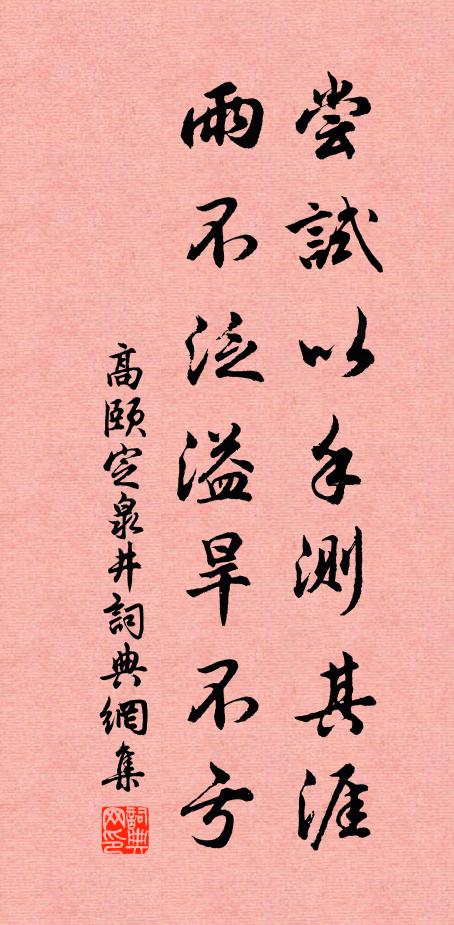 嘗試以手測其涯
雨不泛溢旱不亏
高頤定泉井詞典網集
詞典网印